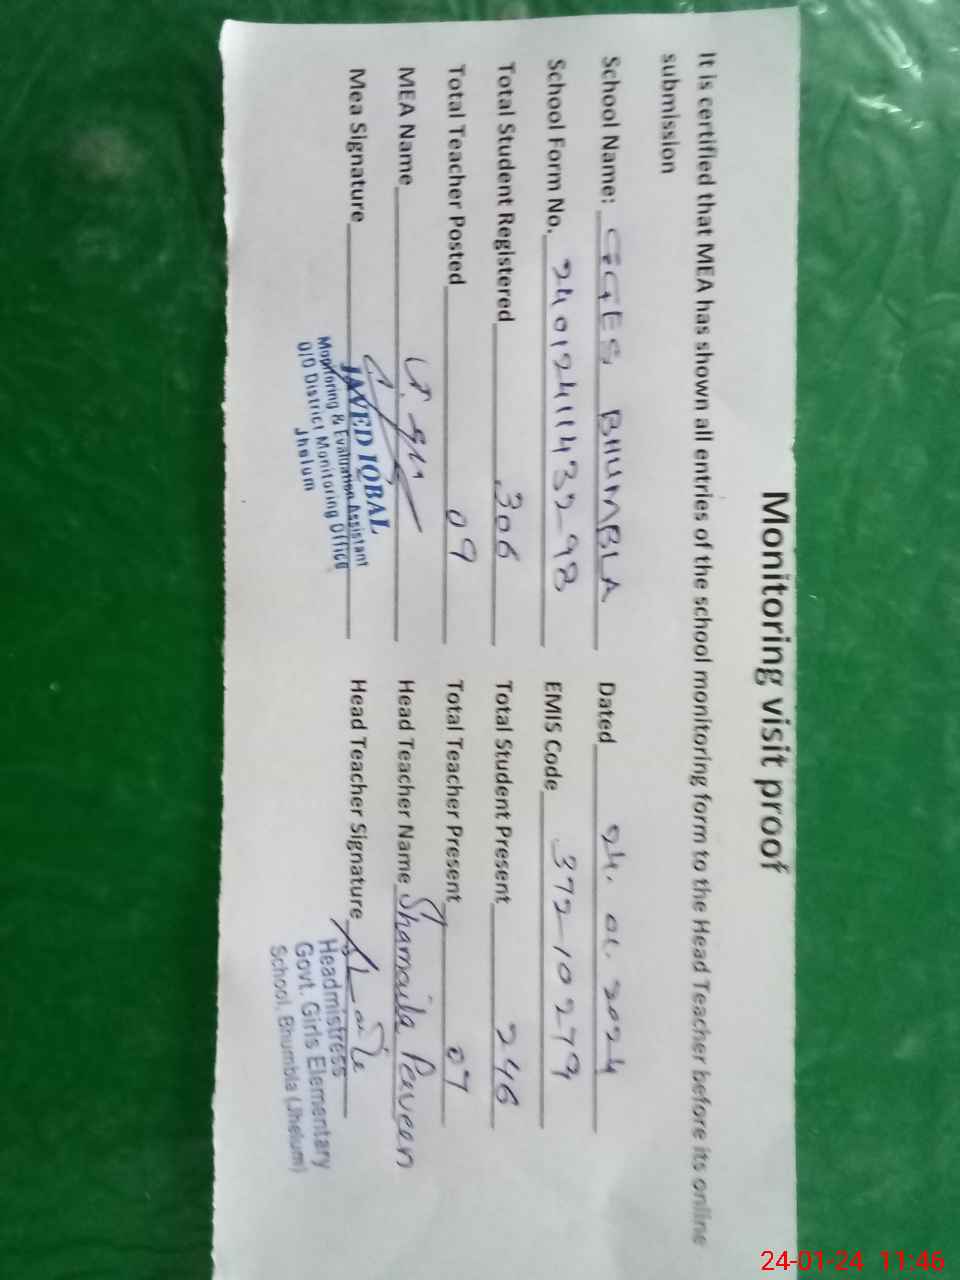 Monitoring visit proof
It is certified that MEA has shown all entries of the school monitoring form to the Head Teacher before its online
submission
School Name: GGES BHUMBLA Dated 24.01.2024
School Form No. 24012411439-98 EMIS Code 372-10279
Total Student Registered 306 Total Student Present 246
Total Teacher Posted 09 Total Teacher Present 07
MEA Name Head Teacher Name Shamaila Parveen
Mea Signature Head Teacher Signature
JAVED IQBAL
Monitoring & Evaluation Assistant
O/O District Monitoring Office
Jhelum
Headmistress
Govt. Girls Elementary
School, Bhumbla (Jhelum)
24-01-24 11:46